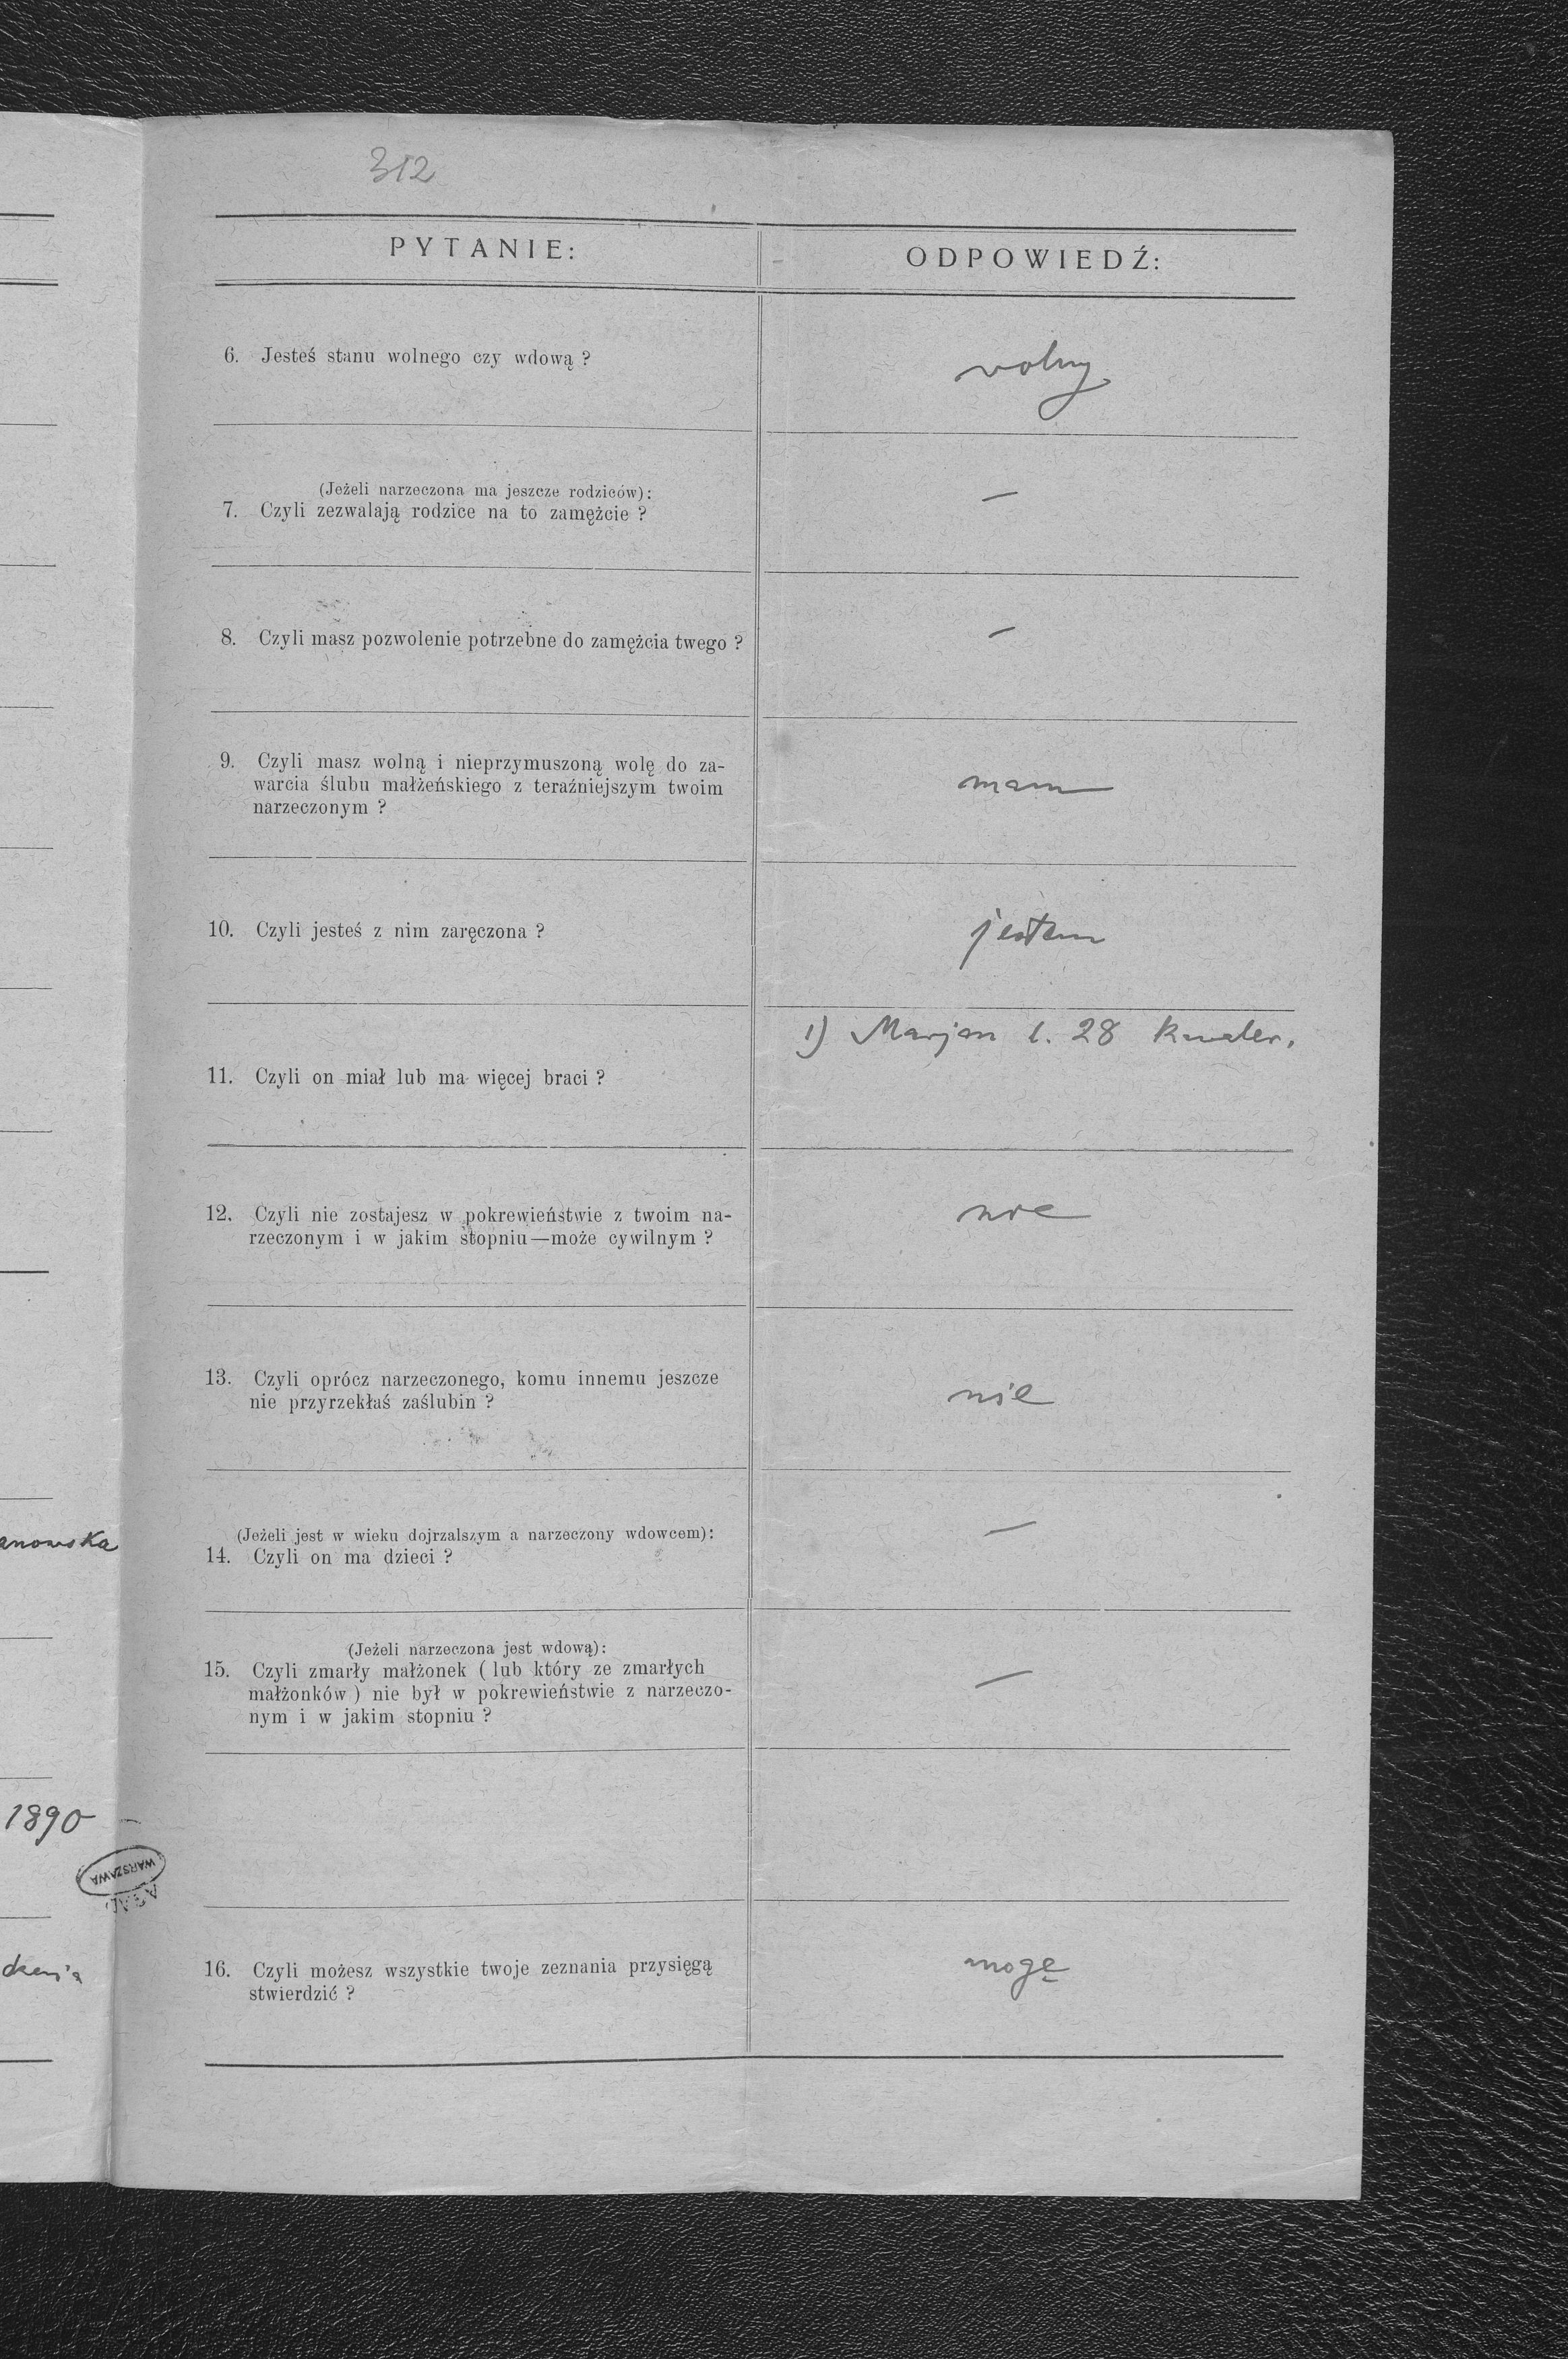 312
PYTANIE:
ODPOWIEDŹ:
6. Jesteś stanu wolnego czy wdową ?
wolny
(Jeżeli narzeczona ma jeszcze rodziców):
7. Czyli zezwalają rodzice na to zamężcie ?
—
8. Czyli masz pozwolenie potrzebne do zamężcia twego ?
—
9. Czyli masz wolną i nieprzymuszoną wolę do za-
warcia ślubu małżeńskiego z teraźniejszym twoim
narzeczonym ?
mam
10. Czyli jesteś z nim zaręczona ?
jestem
11. Czyli on miał lub ma więcej braci ?
1) Marjan l. 28 kawaler.
12. Czyli nie zostajesz w pokrewieństwie z twoim na-
rzeczonym i w jakim stopniu—może cywilnym ?
nie
13. Czyli oprócz narzeczonego, komu innemu jeszcze
nie przyrzekłaś zaślubin ?
nie
(Jeżeli jest w wieku dojrzalszym a narzeczony wdowcem):
14. Czyli on ma dzieci ?
—
(Jeżeli narzeczona jest wdową):
15. Czyli zmarły małżonek ( lub który ze zmarłych
małżonków ) nie był w pokrewieństwie z narzeczo-
nym i w jakim stopniu ?
—
16. Czyli możesz wszystkie twoje zeznania przysięgą
stwierdzić ?
mogę
anowska
1890
WARSZAWA